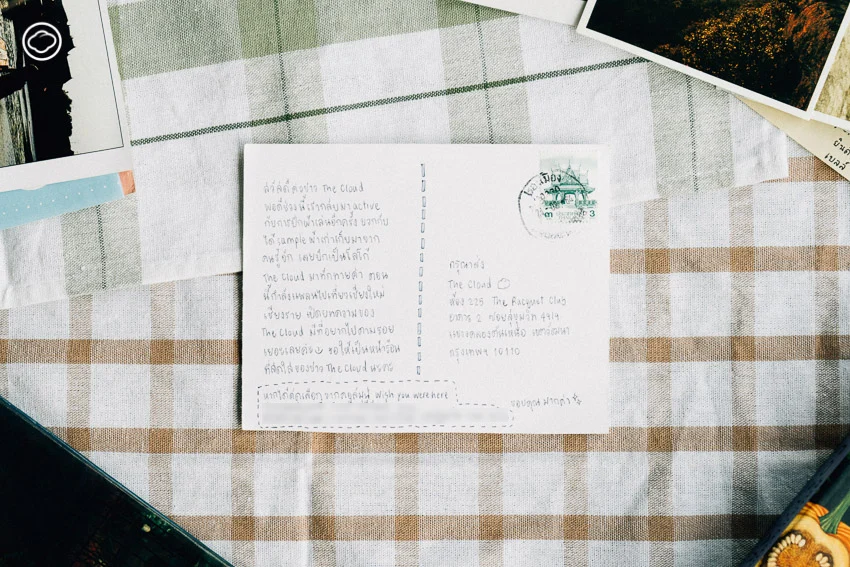 สวัสดีค่ะชาว The Cloud
พอดีช่วงนี้เรากลับมา active
กับการปักผ้าเล่นอีกครั้ง บวกกับ
ได้ sample ผ้าเก่าเก็บมาจาก
คนรู้จัก เลยปักเป็นโลโก้
The Cloud มาทักทายค่ะ ตอน
นี้กำลังแพลนไปเที่ยวเชียงใหม่
เชียงราย เปิดบทความของ
The Cloud มีที่อยากไปตามรอย
เยอะเลยค่ะ ขอให้เป็นหน้าร้อน
ที่สดใสของชาว The Cloud นะคะ
หากได้คัดเลือก จากตู้ Wish you were here
ขอบคุณมากค่ะ
กรุณาส่ง
The Cloud
ห้อง 225 The Racquet Club
อาคาร 2 ซอยสุขุมวิท 49/9
แขวงคลองตันเหนือ เขตวัฒนา
กรุงเทพฯ 10110
3